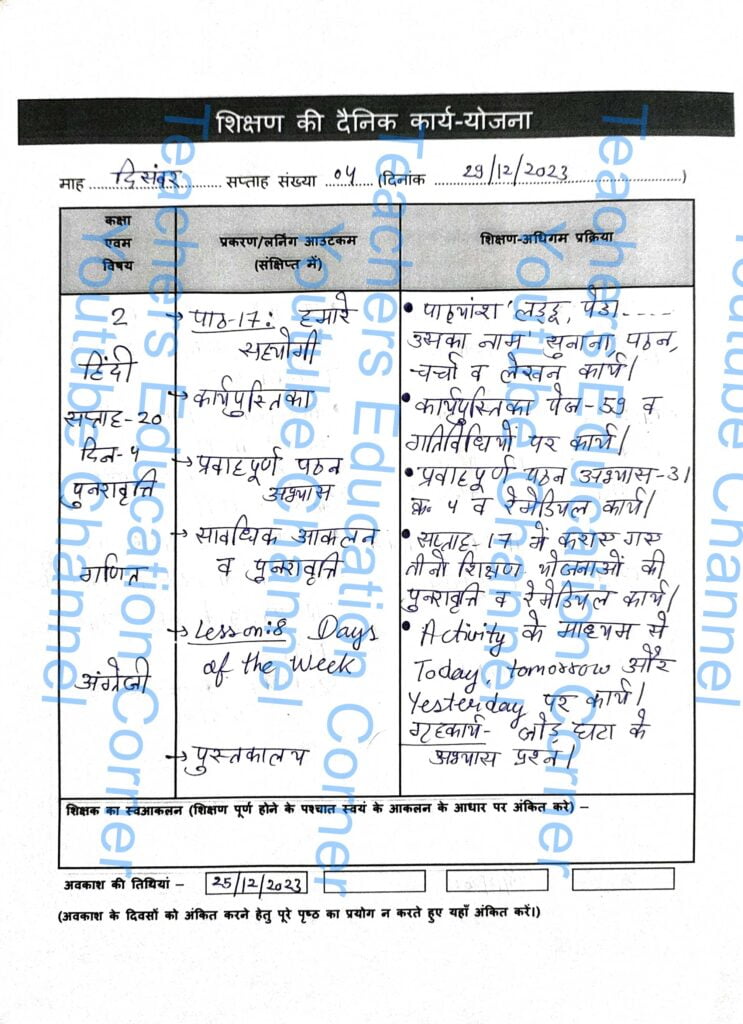 शिक्षण की दैनिक कार्य-योजना
माह दिसंबर सप्ताह संख्या 04 (दिनांक 29/12/2023)
कक्षा
एवम
विषय
प्रकरण/लर्निंग आउटकम
(संक्षिप्त में)
शिक्षण-अधिगम प्रक्रिया
2
हिंदी
सप्ताह-20
दिन-4
पुनरावृत्ति
गणित
अंग्रेजी
→ पाठ-17: हमारे
सहयोगी
→ कार्यपुस्तिका
→ प्रवाहपूर्ण पठन
अभ्यास
→ सावधिक आकलन
व पुनरावृत्ति
→ Lesson:8 Days
of the Week
→ पुस्तकालय
• पाठ्यांश 'लड्डू, पेडा----
उसका नाम' सुनाना, पठन,
चर्चा व लेखन कार्य।
• कार्यपुस्तिका पेज-59 व
गतिविधियों पर कार्य।
• प्रवाहपूर्ण पठन अभ्यास-31
क्र. 4 व रेमेडियल कार्य।
• सप्ताह-17 में कराए गए
तीनो शिक्षण योजनाओं की
पुनरावृत्ति व रेमेडियल कार्य।
• Activity के माध्यम से
Today, tomorrow और
Yesterday पर कार्य।
गृहकार्य- जोड़ घटा के
अभ्यास प्रश्न।
शिक्षक का स्वआकलन (शिक्षण पूर्ण होने के पश्चात स्वयं के आकलन के आधार पर अंकित करे) –
अवकाश की तिथियां – 25/12/2023
(अवकाश के दिवसों को अंकित करने हेतु पूरे पृष्ठ का प्रयोग न करते हुए यहाँ अंकित करें।)
Teachers Education Corner
Youtube Channel
Teachers Education Corner
Youtube Channel
Teachers Education Corner
Youtube Channel